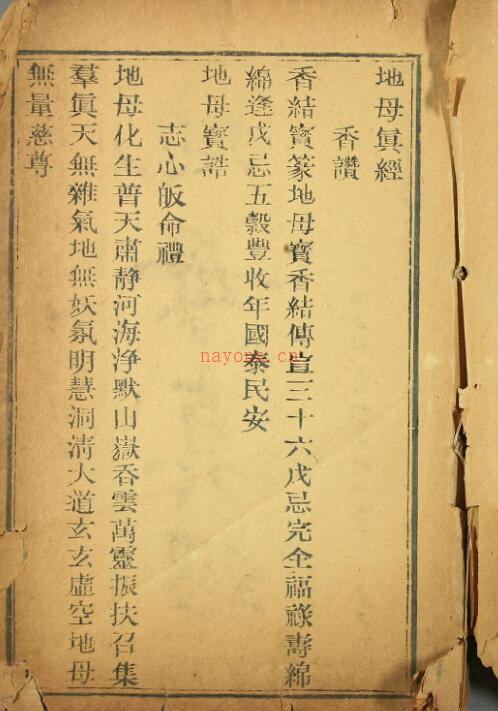 地母眞經
香讚
香結寶篆地母寶香結傳宣三十六戊忌完全福祿壽綿
綿逢戊忌五穀豐收年國泰民安
地母寶誥
志心皈命禮
地母化生普天肅静河海浄默山嶽吞雲萬靈振扶召集
羣眞天無雜氣地無妖氛明慧洞淸大道玄玄虛空地母
無量慈尊
nayong.cn